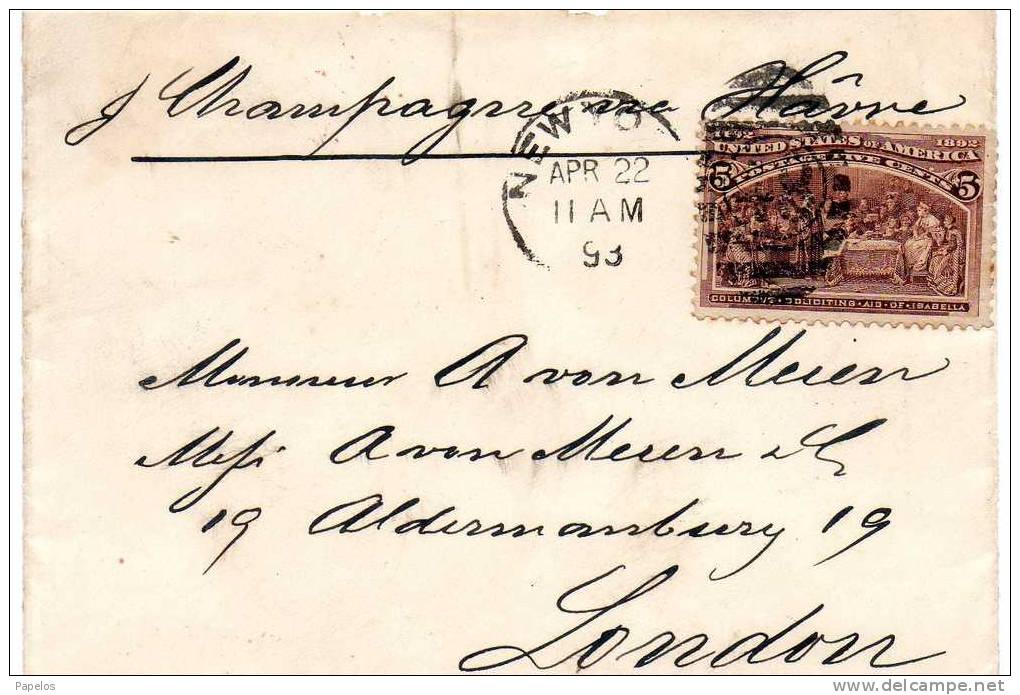 p Champagne via Hâvre
NEW YO
APR 22
11 AM
93
1492 1892
UNITED STATES OF AMERICA
5 POSTAGE FIVE CENTS 5
COLUMBUS · SOLICITING · AID · OF · ISABELLA
Monsieur A von Meien
A von Meien & C
19 Aldermanbury 19
London
Papelos
www.delcampe.net